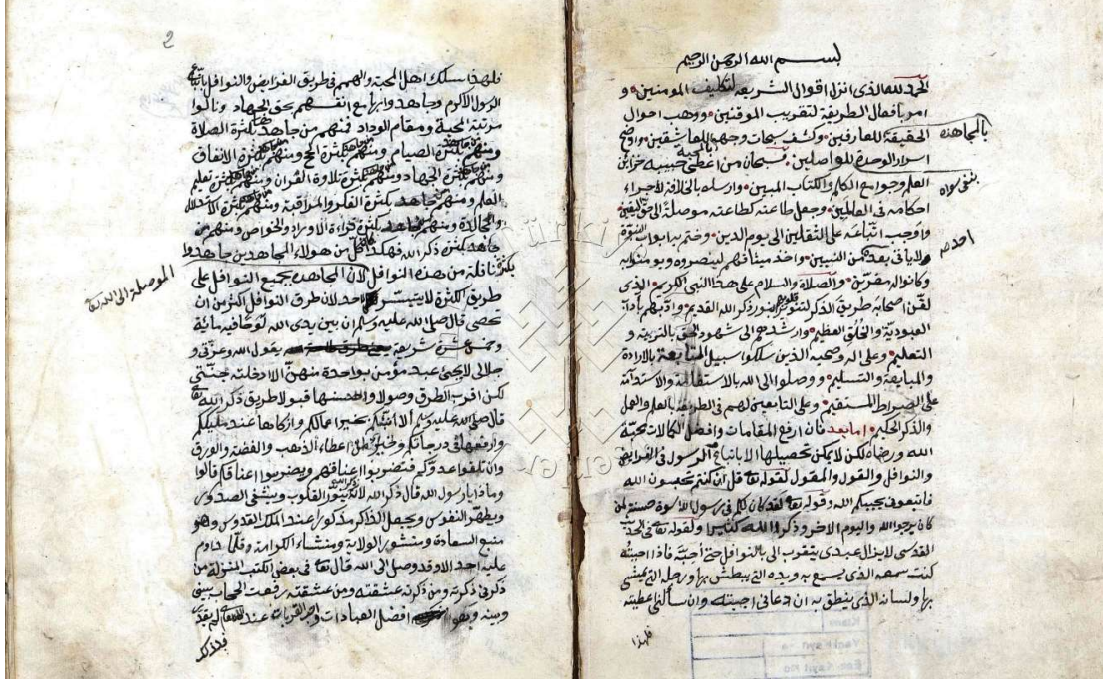 بسم الله الرحمن الرحيم
الحمد لله الذى انزل اقوال الشريعه لتكليف المومنين و
امر بافعال الطريقة لتقريب الموقنين ووهب احوال
الحقيقة للعارفين وكشف سبحات وجهه للعاشقين واوضح
بالمجاهده
اسرار الوحدة للواصلين فسبحان من اعطى حبيبه خزاين
العلم وجوامع الكلم والكتاب المبين وارسله بالخلافة لاجراء
احكامه فى العالمين وجعل طاعته كطاعته موصلة الى حق اليقين
واوجب اتباعه على الثقلين الى يوم الدين وختم به ابواب النبوة
ولا ياتى بعده من النبيين واخذ ميثاقهم لينصروه ويومنوا به
وكانوا له مقرين والصلاة والسلام على هذا النبى الكريم الذى
لقن اصحابه طريق الذكر لتنوير قلوبهم بنور ذكر الله القديم وادبهم بآداب
العبودية والخُلُق العظيم وارشدهم الى شهود الحق بالتربية و
التعليم وعلى اله وصحبه الذين سلكوا سبيل المتابعة بالارادة
والمبايعة والتسليم ووصلوا الى الله بالاستقامة والاستدامة
على الصراط المستقيم وعلى التابعين لهم فى الطريقه بالعلم والعمل
والذكر الحكيم اما بعد فان ارفع المقامات وافضل الكمالات محبة
الله ورضاه لكن لا يمكن تحصيلها الا باتباع الرسول فى الفرايض
والنوافل والقول والمقول لقوله تعالى قل ان كنتم تحبون الله
فاتبعونى يحببكم الله وقوله تعالى لقد كان لكم فى رسول الله اسوة حسنة لمن
كان يرجو الله واليوم الاخر وذكر الله كثيرا ولقوله تعالى فى الحديث
القدسى لا يزال عبدى يتقرب الى بالنوافل حتى أُحِبَّهُ فاذا احببتُه
كنت سمعه الذى يسمع به ويده التى يبطش بها ورجله التى يمشى
بها ولسانه الذى ينطق به ان دعانى اجبته وان سألنى اعطيته
فلهذا
2
فلهذا سلك اهل المحبة والهمم فى طريق الفرايض والنوافل باتباع
الرسول الاكرم وجاهدوا بها مع انفسهم بحق الجهاد ونالوا
مرتبة المحبة ومقام الوداد فمنهم من جاهد بكثرة الصلاة
ومنهم بكثرة الصيام ومنهم بكثرة الحج ومنهم بكثرة الانفاق
ومنهم بكثرة الجهاد ومنهم بكثرة تلاوة القران ومنهم بكثرة تعليم
العلم ومنهم جاهد بكثرة الفكر والمراقبة ومنهم بكثرة
والمجالدة ومنهم بكثرة قراءة الاوراد والخواص ومنهم من
جاهد بكثرة ذكر الله فهكذا من هولاء المجاهدين جاهدوا
بكثرة نافلة من هذه النوافل لان المجاهده بجميع النوافل على
الموصلة الى الله
طريق الكثرة لا يتيسر لاحد لان طرق النوافل اكثر من ان
تحصى قال صلى الله عليه وسلم ان بين يدى الله لوحا فيه مائة
وخمس عشرة شريعة يقول الله وعزتى و
جلالى لا يجئ عبد مؤمن بواحدة منهنّ الا ادخلته جنتى
لكن اقرب الطرق وصولا واحسنها قبولا طريق ذكر الله تعالى
قال صلى الله عليه وسلم ألا انبئكم بخير اعمالكم وازكاها عند مليككم
وارفعها فى درجاتكم وخير من اعطاء الذهب والفضة والورق
وان تلقوا عدوكم فتضربوا اعناقهم ويضربوا اعناقكم قالوا
وماذا يا رسول الله قال ذكر الله لانه ينور القلوب ويشفى الصدور
ويطهر النفوس ويجعل الذاكر مذكورا عند الملك القدوس وهو
منبع السعادة ومنشور الولاية ومنشاء الكرامة وقلما داوم
عليه احد الا وقد وصل الى الله قال تعالى فى بعض الكتب المنزلة من
ذكرنى ذكرته ومن ذكرته عشقته ومن عشقته رفعت الحجاب بينى
وبينه وهو افضل العبادات القربات عند الله